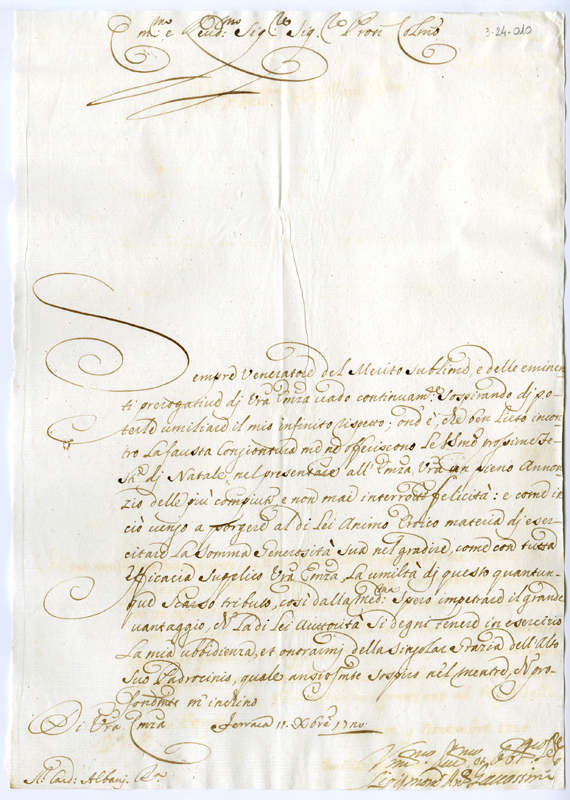 Em.mo e Reud: Sig.re Sig.re Pron Colmo
3-24-010
Sempre Veneratore del Merito Sublime, e delle eminen
ti prerogative dj Vra Emza uado continuam.te Sospirando dj po
terle umiliare il mio infinito rispetto; ond'è, che ben Lieto incon
tro La fausta Conjiontura me ne offeriscono Le prossime fe
ste dj Natale, nel presentare all'Emza Vra un pieno Annon
zio delle più compiute e non mai interrotte felicità: e come in
ciò uengo a porgere al di Lei Animo Eroico materia dj eser
citare La Somma Generosità Sua nel gradire, come con tutta
efficacia Supplico Vra Emza, La umiltà dj questo quantun
que Scarso tributo, così dalla med:ma Spero impetrare il grande
uantaggio, che La di Lei Auttorità Si degni tenere in esercizio
La mia ubbidienza, et onorarmj della Singolar Grazia dell'Alto
Suo Padrocinio, quale ansiosmte Sospiro nel mentre, che pro
fondmte m'inchino
Di Vra Emza Ferrara 11. Xbre
Sr. Card: Albanj